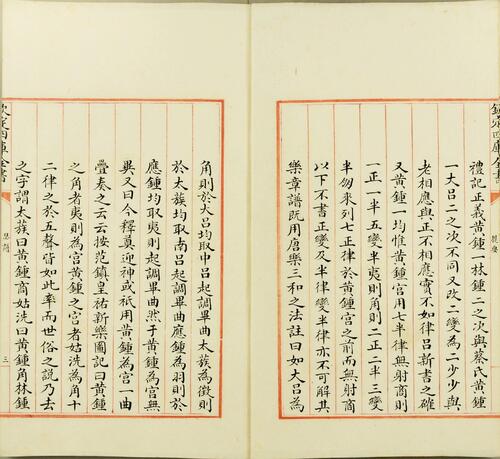 欽定四庫全書
禮記正義黃鍾一林鍾二之次與蔡氏黃鍾
一大呂二之次不同又改二變為二少少與
老相應與正不相應實不如律呂新書之確
又黃鍾一均惟黃鍾宮用七半律無射商則
一正一半五變半夷則角則二正二半三變
半勿來列七正律於黃鍾宮之前而無射商
以下不書正變及半律變半律亦不可解其
樂章譜既用唐樂三和之法註曰如大呂為
角則於大呂均取中呂起調畢曲太蔟為徵則
於太蔟均取南呂起調畢曲應鍾為羽則於
應鍾均取夷則起調畢曲然于黃鍾為宮無
異又曰今釋奠迎神或祇用黃鍾為宮一曲
疊奏之云云按范鎮皇祐新樂圖記曰黃鍾
之角者夷則為宮黃鍾之宮者姑洗為角十
二律之於五聲皆如此率而世俗之說乃去
之字謂太蔟曰黃鍾商姑洗曰黃鍾角林鍾
欽定四庫全書
三